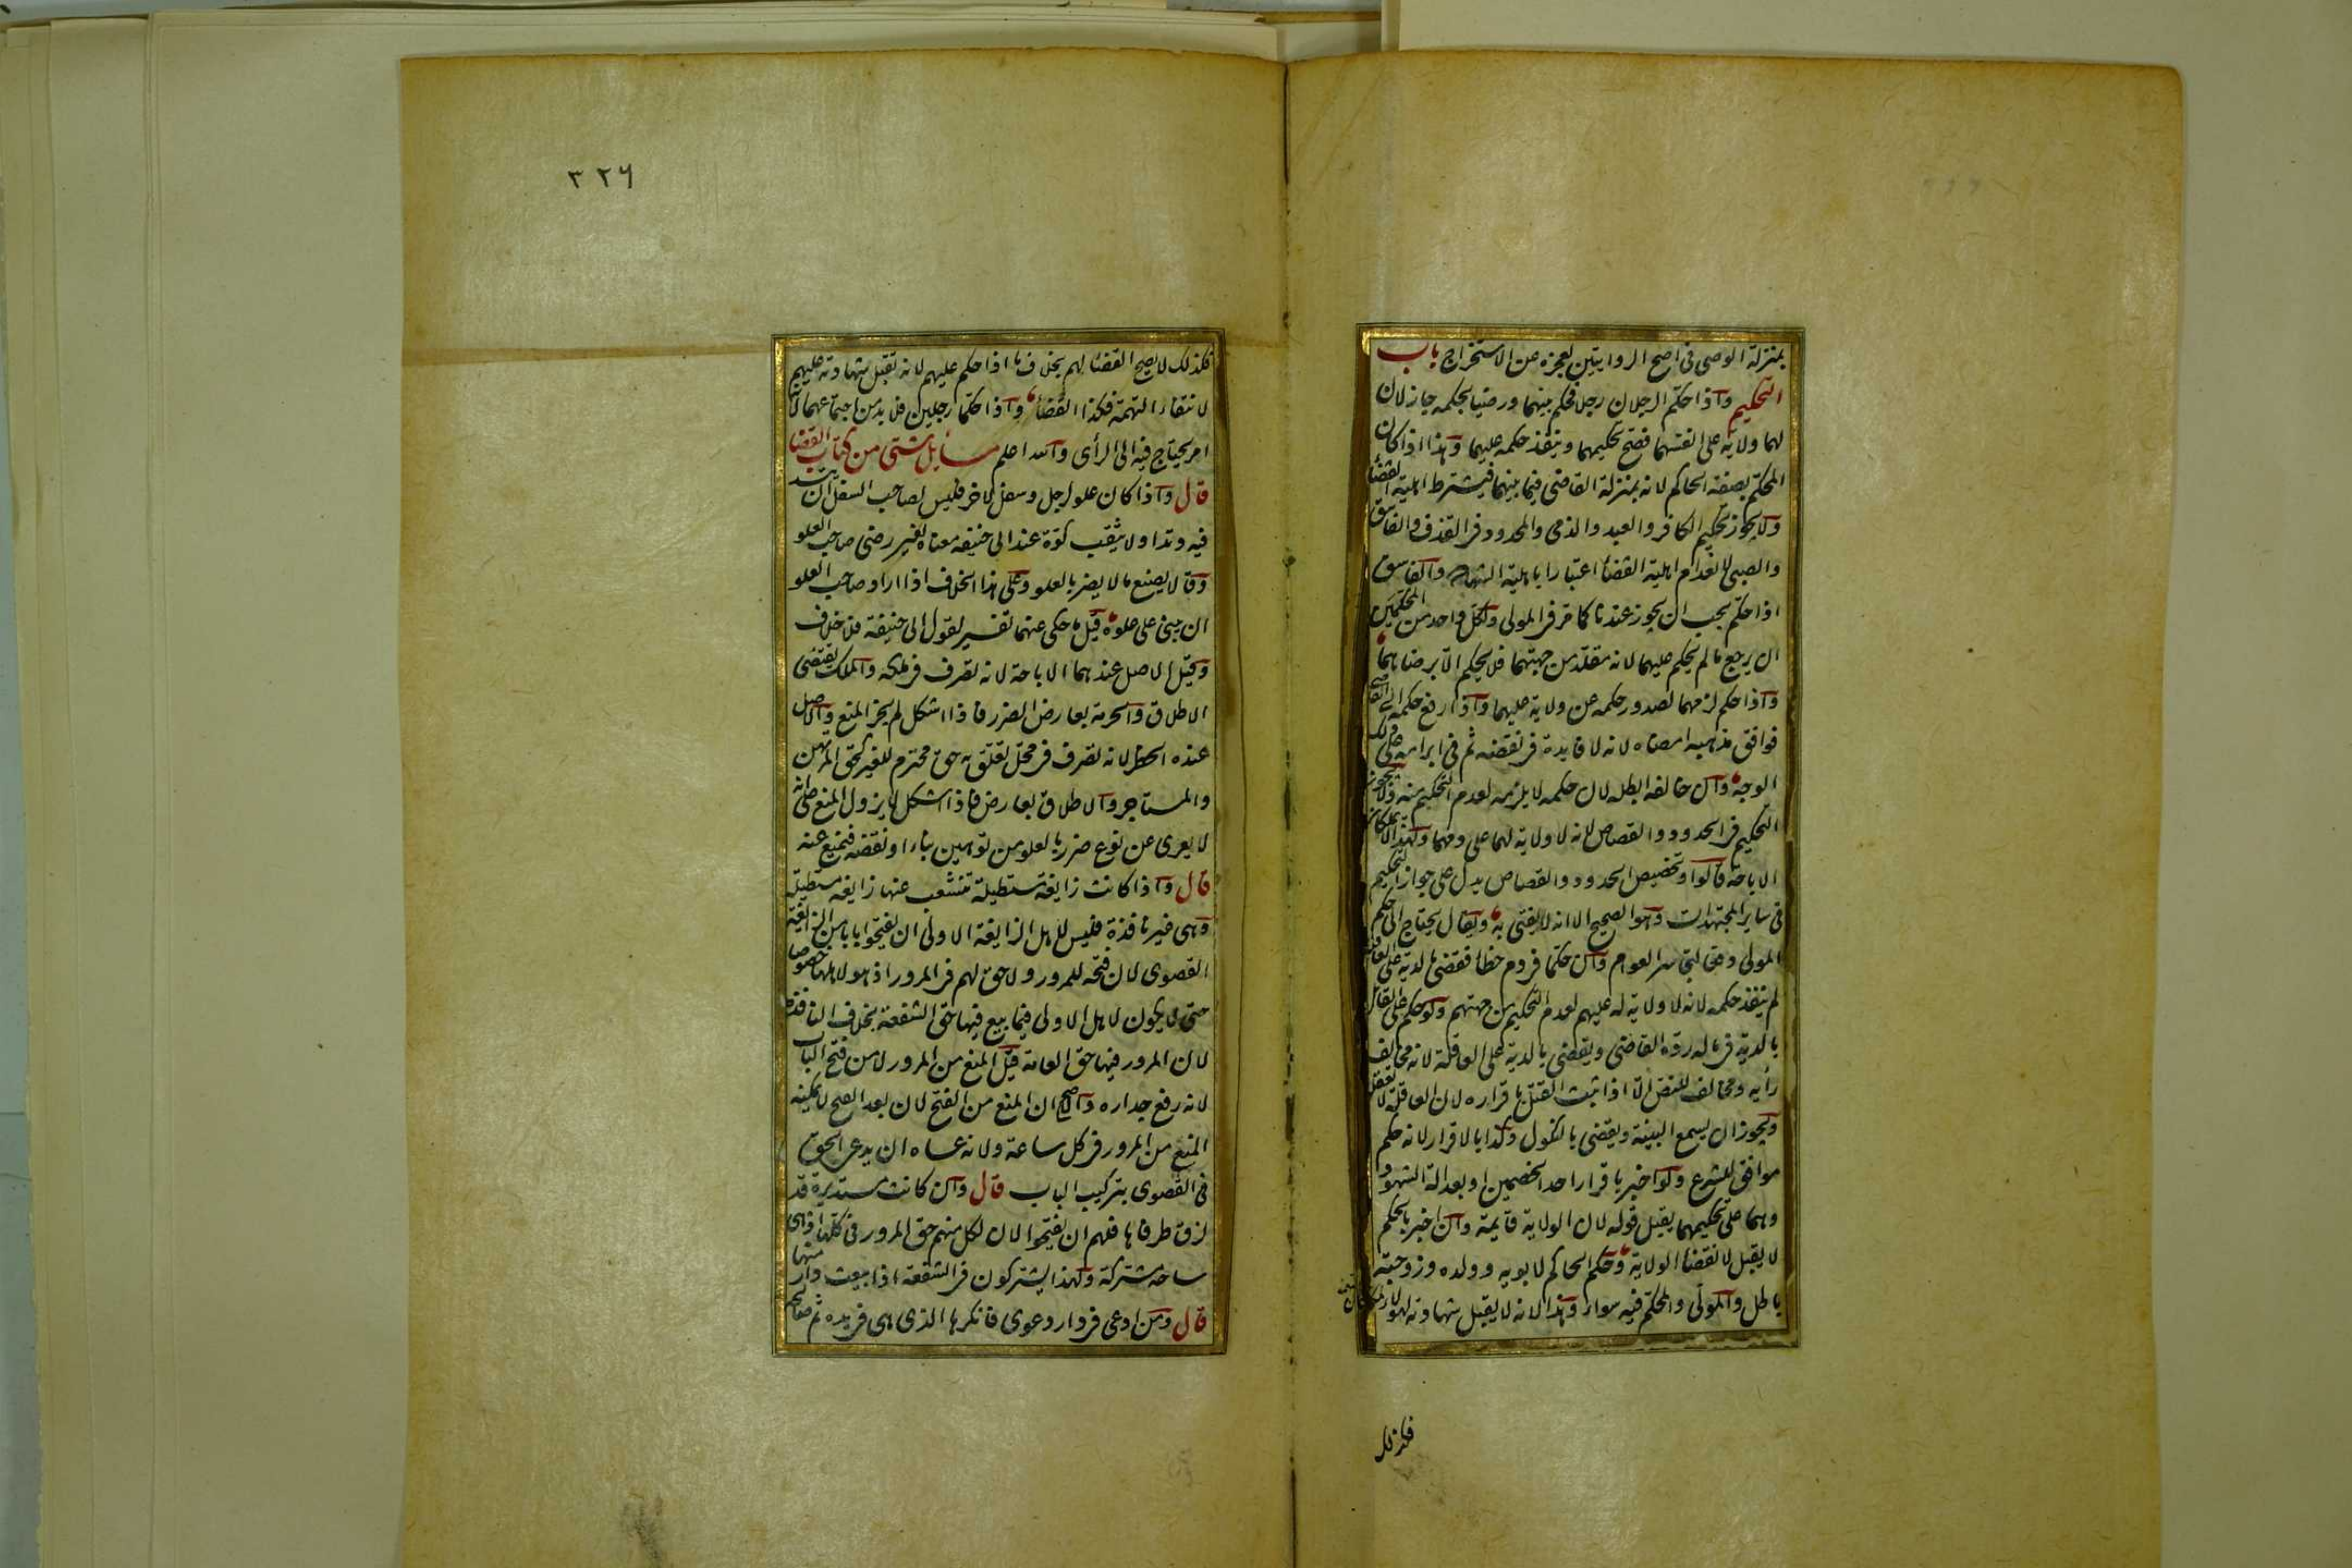 بمنزلة الوصى فى اصح الروايتين لعجزه عن الاستخراج باب
التحكيم واذا حكّم الرجلان رجلا فحكم بينهما ورضيا بحكمه جاز لان
لهما ولاية على انفسهما فصح تحكيمهما وينفذ حكمه عليهما وهذا اذا كان
المحكّم بصفة الحاكم لانه بمنزلة القاضى فيما بينهما فيشترط اهلية القضاء
ولا يجوز تحكيم الكافر والعبد والذمى والمحدود فى القذف والفاسق
والصبى لانعدام اهلية القضاء اعتبارا باهلية الشهادة والفاسق
اذا حكّم يجب ان يجوز عندنا كما مر فى المولى ولكل واحد من المحكّمين
ان يرجع ما لم يحكم عليهما لانه مقلّد من جهتهما فلا يحكم الا برضاهما
واذا حكم لزمهما لصدور حكمه عن ولاية عليهما واذا رفع حكمه الى القاضى
فوافق مذهبه امضاه لانه لا فايدة فى نقضه ثم فى ابرامه على ذلك
الوجه وان خالفه ابطله لان حكمه لا يلزمه لعدم التحكيم منه ولا يجوز
التحكيم فى الحدود والقصاص لانه لا ولاية لهما على دمهما ولهذا لا يملكان
الاباحة قالوا وتخصيص الحدود والقصاص يدل على جواز التحكيم
فى ساير المجتهدات وهو الصحيح الا انه لا يفتى به ويقال يحتاج الى حكم
المولى دفعا لتجاسر العوام وان حكما فى دم خطا فقضى بالدية على العاقلة
لم ينفذ حكمه لانه لا ولاية له عليهم لعدم التحكيم من جهتهم ولو حكم على القاتل
بالدية فى ماله ردّه القاضى ويقضى بالدية على العاقلة لانه مخالف
رأيه ومخالف للنص الّا اذا ثبت القتل باقراره لان العاقلة لا تعقله
ويجوز ان يسمع البينة ويقضى بالنكول وكذا بالاقرار لانه حكم
موافق للشرع ولو اخبر باقرار احد الخصمين او بعدالة الشهود
وهما على تحكيمهما يقبل قوله لان الولاية قايمة وان اخبر بالحكم
لا يقبل لانقضاء الولاية وحكم الحاكم لابويه وولده وزوجته
باطل والمولّى والمحكّم فيه سواء وهذا لانه لا يقبل شهادته لهولاء لمكان التهمة
فكذلك
٣٢٦
فكذلك لا يصح القضاء لهم بخلاف ما اذا حكم عليهم لانه تقبل شهادته عليهم
لانتفاء التهمة فكذا القضاء واذا حكّما رجلين فلا بد من اجتماعهما لانه
امر يحتاج فيه الى الرأى والله اعلم مسايل شتى من كتاب القضا
قال واذا كان علو لرجل وسفل لاخر فليس لصاحب السفل ان يتد
فيه وتدا ولا يثقب كوّة عند ابى حنيفه معناه بغير رضى صاحب العلو
وقالا يصنع ما لا يضر بالعلو وعلى هذا الخلاف اذا اراد صاحب العلو
ان يبنى على علوه قيل ما حكى عنهما تفسير لقول ابى حنيفة فلا خلاف
وقيل الاصل عندهما الاباحة لانه تصرف فى ملكه والملك يقتضى
الاطلاق والحرمة بعارض الضرر فاذا اشكل لم يجز المنع والاصل
عنده الحظر لانه تصرف فى محلّ تعلّق به حق محترم للغير كحق المرتهن
والمستاجر والاطلاق بعارض فاذا اشكل لا يزول المنع على انه
لا يعرى عن نوع ضرر بالعلو من توهين بناء او نقضه فيمنع عنه
قال واذا كانت زايغة مستطيلة تنشعب عنها زايغه مستطيلة
وهى غير نافذة فليس لاهل الزايغة الاولى ان يفتحوا بابا من الزايغة
القصوى لان فتحه للمرور ولا حق لهم فى المرور اذ هو لاهلها خصوصا
حتى لا يكون لاهل الاولى فيما بيع فيها حق الشفعة بخلاف النافذة
لان المرور فيها حق العامة قيل المنع من المرور لا من فتح الباب
لانه رفع جداره والاصح ان المنع من الفتح لان بعد الفتح لا يمكنه
المنع من المرور فى كل ساعة ولانه عساه ان يدعى الحق
فى القصوى بتركيب الباب قال وان كانت مستديرة قد
لزق طرفاها فلهم ان يفتحوا لان لكل منهم حق المرور فى كلها اذ هى
ساحة مشتركة ولهذا يشتركون فى الشفعة اذا بيعت دار منها
قال ومن ادعى فى دار دعوى فانكرها الذى هى فى يده ثم صالحه